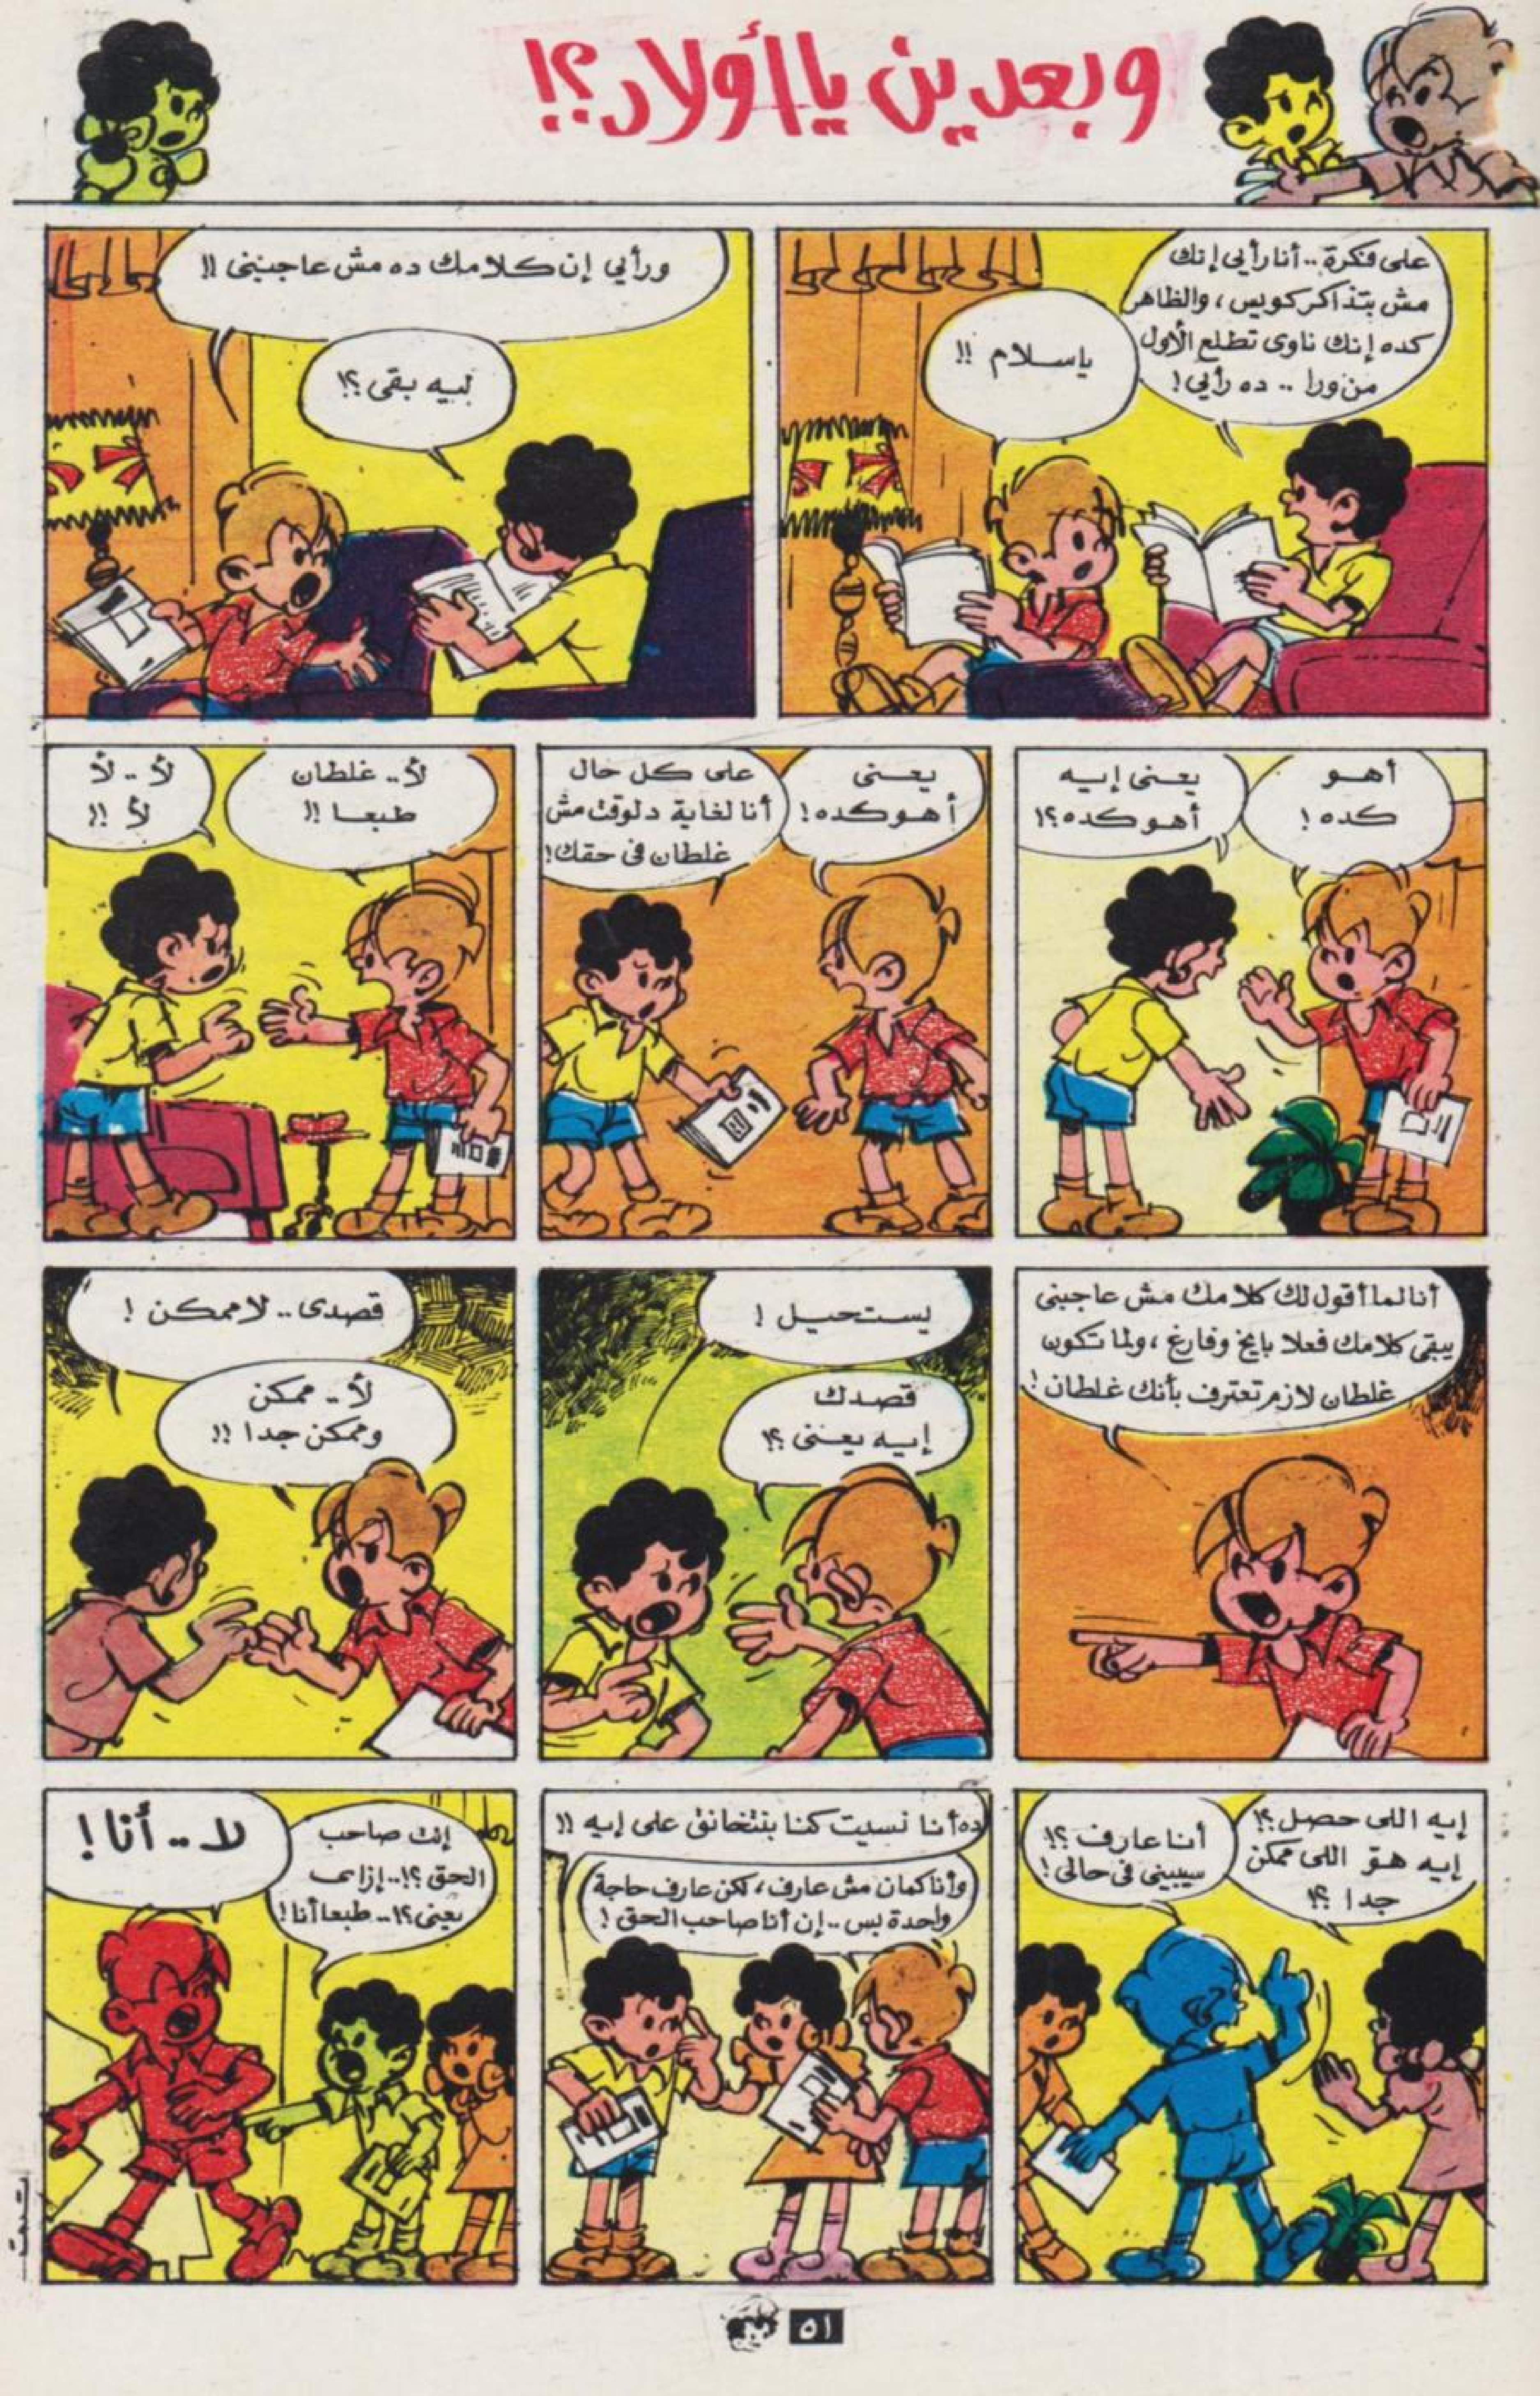 وبعدين يا أولاد؟!
على فكرة.. أنا رأيي إنك
مش بتذاكر كويس، والظاهر
كده إنك ناوى تطلع الأول
من ورا .. ده رأيي!
ياسلام !!
ورأيي إن كلامك ده مش عاجبنى !!
ليه بقى ؟!
أهو
كده !
يعنى إيه
أهو كده ؟!
يعنى
أهو كده !
على كل حال
أنا لغاية دلوقت مش
غلطان فى حقك !
لأ.. غلطان
طبعا !!
لأ .. لأ
لأ !!
أنا لما أقول لك كلامك مش عاجبنى
يبقى كلامك فعلا بايخ وفارغ ، ولما تكون
غلطان لازم تعترف بأنك غلطان !
يستحيل !
قصدك
إيه يعنى ؟!
قصدى.. لا ممكن !
لأ .. ممكن
وممكن جدا !!
إيه اللى حصل ؟!
إيه هوّ اللى ممكن
جدا ؟!
أنا عارف ؟!
سيبينى فى حالى !
ده أنا نسيت كنا بنتخانق على إيه !!
وأنا كمان مش عارف ، لكن عارف حاجة
واحدة بس .. إن أنا صاحب الحق !
إنت صاحب
الحق ؟!.. إزاى
يعنى ؟!.. طبعا أنا !
لا .. أنا !
تمت
٥١